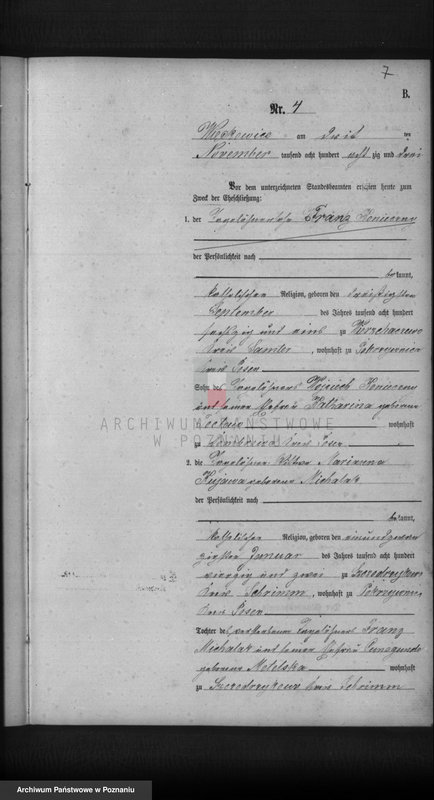 7
B.
Nr. 4
Wieckowice am drei ten
November tausend acht hundert acht zig und drei
Vor dem unterzeichneten Standesbeamten erschien heute zum
Zweck der Eheschließung:
1. der Tagelöhnersohn Franz
der Persönlichkeit nach
bekannt,
katholischer Religion, geboren den dreißigsten
September des Jahres tausend acht hundert
sechzig und eins zu
Kreis Samter, wohnhaft zu
Kreis Posen
Sohn des Tagelöhners Wojciech
und seiner Ehefrau Katharina geborene
wohnhaft
zu Kreis Posen
2. die Tagelöhner Wittwe Marianna
Kujawa geborene Michalak
der Persönlichkeit nach
bekannt,
katholischer Religion, geboren den einundzwan
zigsten Januar des Jahres tausend acht hundert
vierzig und zwei zu
Kreis Schrimm, wohnhaft zu
Kreis Posen
Tochter des verstorbenen Tagelöhners Franz
Michalak und seiner Ehefrau
geborene wohnhaft
zu Kreis Schrimm
ARCHIWUM PAŃSTWOWE
W POZNANIU
Archiwum Państwowe w Poznaniu